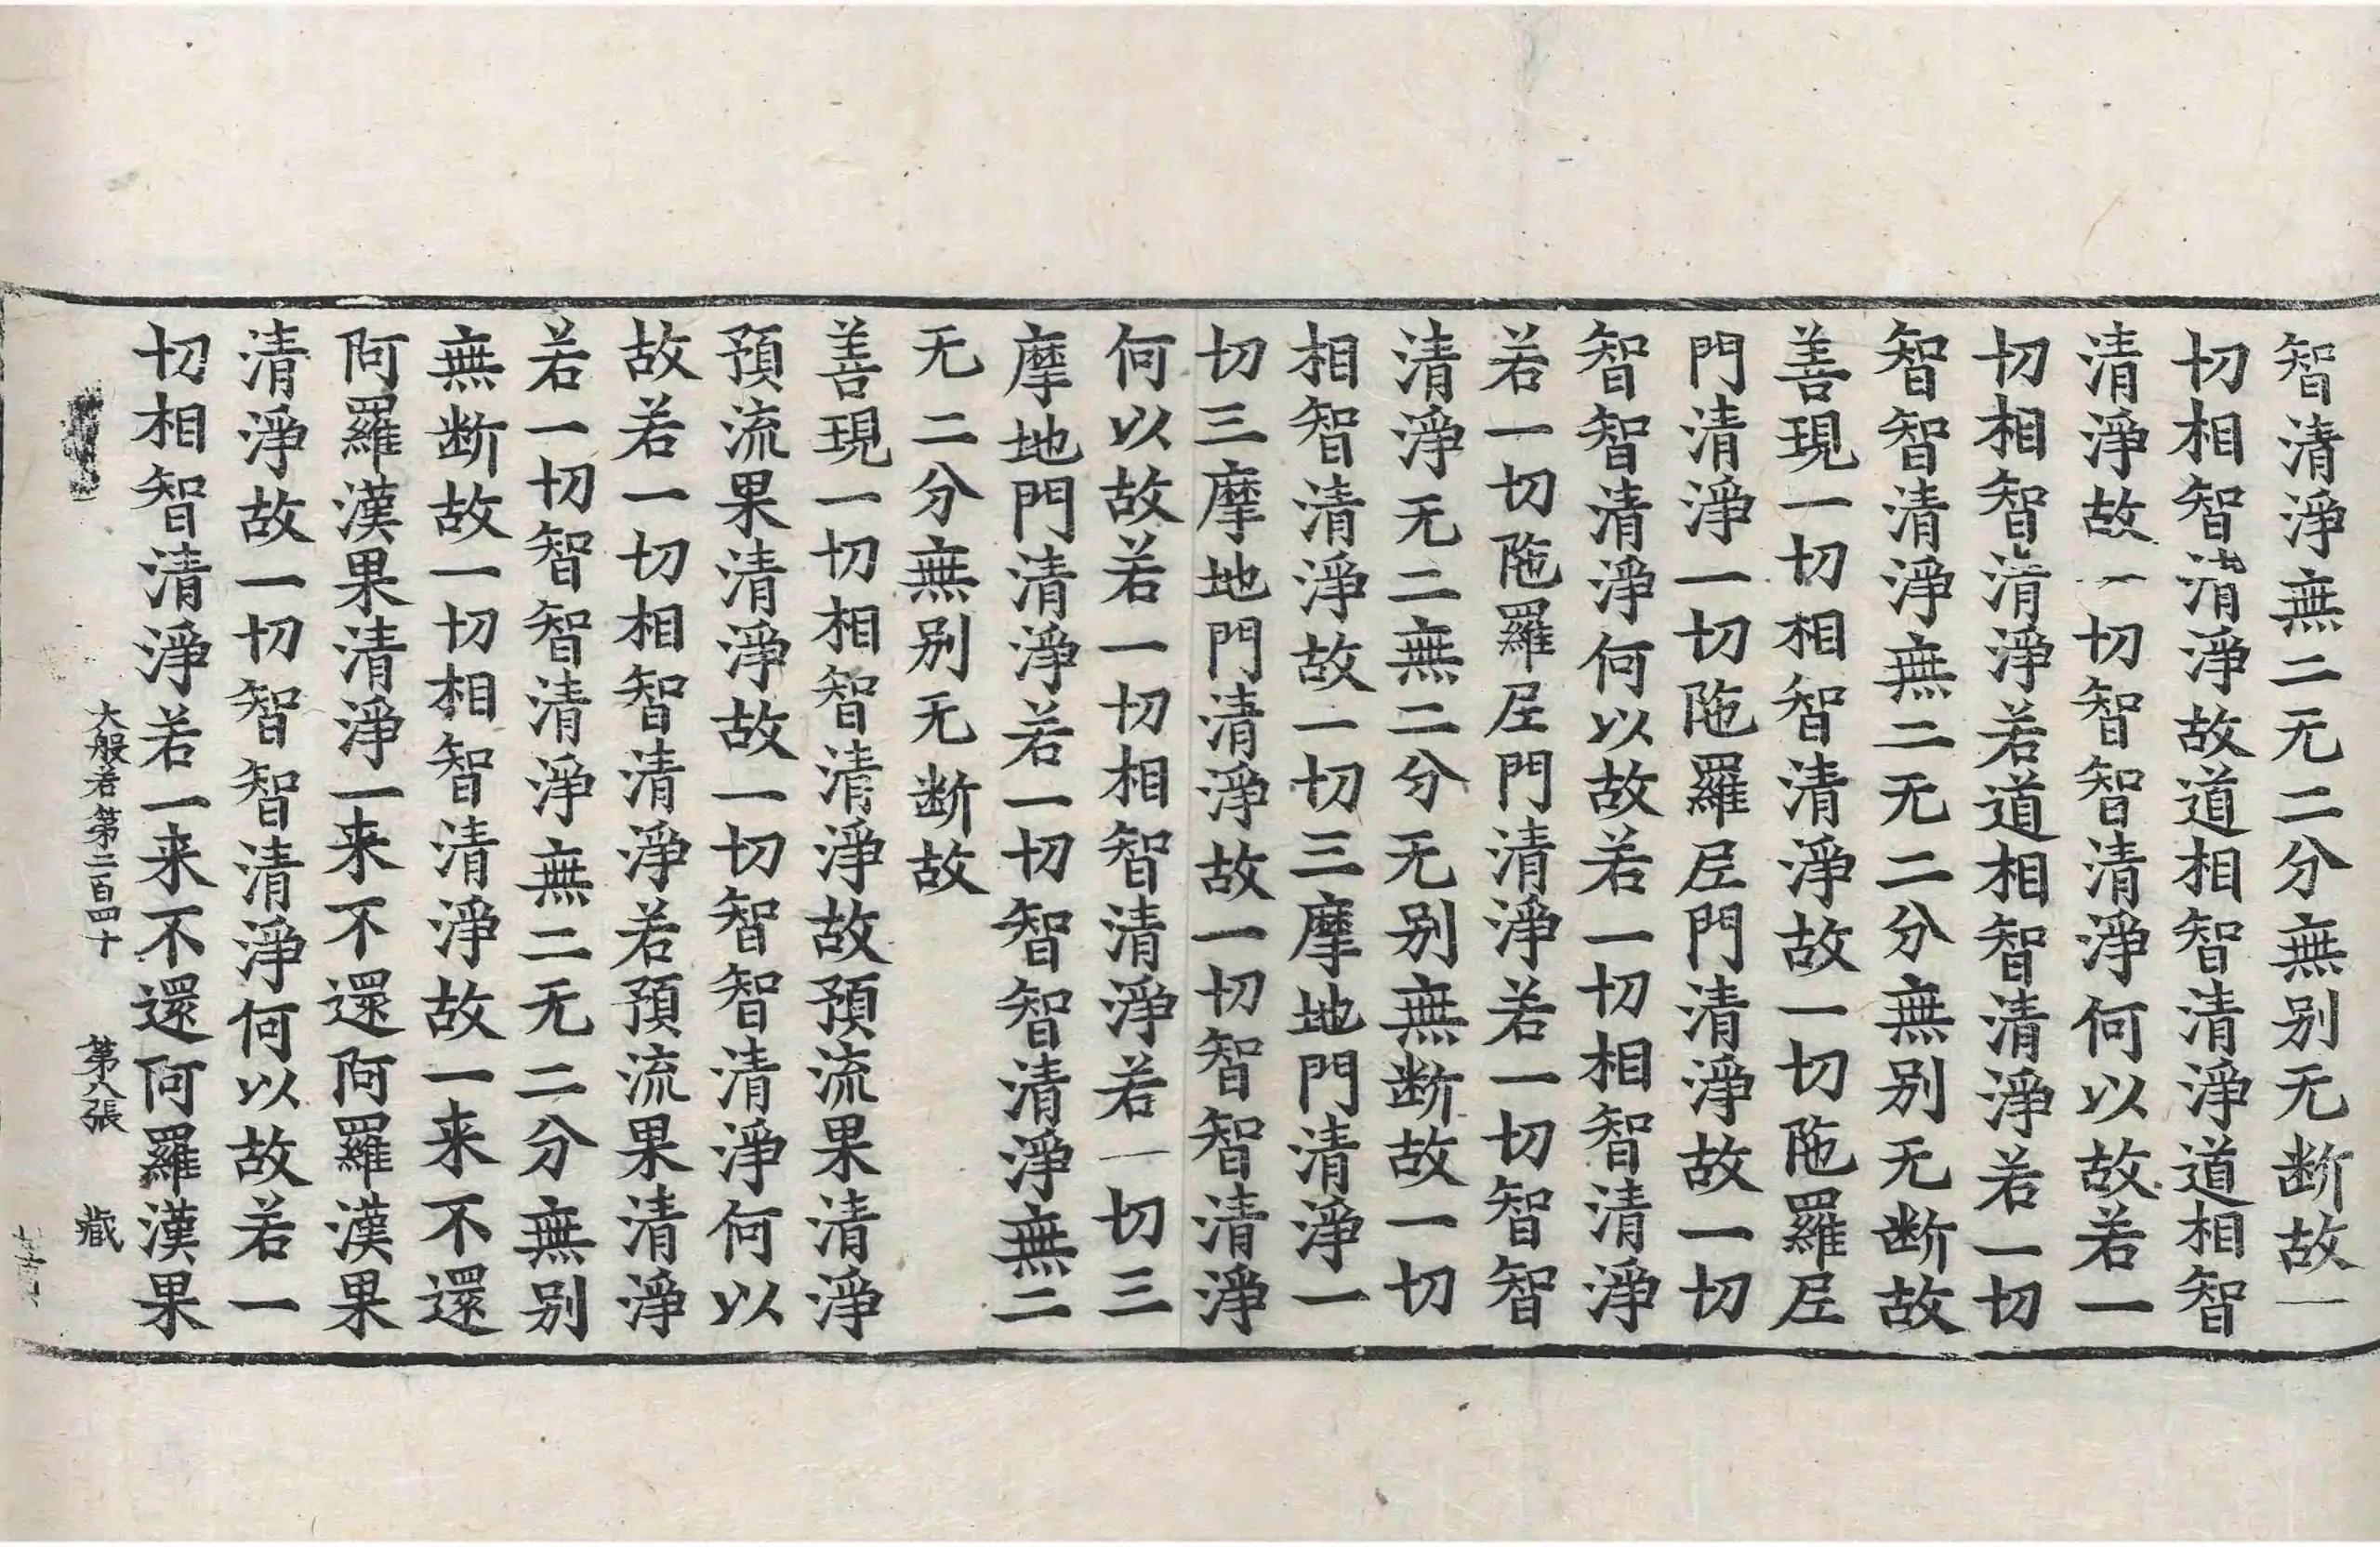 智清淨無二无二分無别无断故一
切相智清淨故道相智清淨道相智
清淨故一切智智清淨何以故若一
切相智清淨若道相智清淨若一切
智智清淨無二无二分無别无断故
善現一切相智清淨故一切陁羅𡰱
門清淨一切陁羅𡰱門清淨故一切
智智清淨何以故若一切相智清淨
若一切陁羅𡰱門清淨若一切智智
清淨无二無二分无别無断故一切
相智清淨故一切三摩地門清淨一
切三摩地門清淨故一切智智清淨
何以故若一切相智清淨若一切三
摩地門清淨若一切智智清淨無二
无二分無别无断故
善現一切相智清淨故預流果清淨
預流果清淨故一切智智清淨何以
故若一切相智清淨若預流果清淨
若一切智智清淨無二无二分無别
無断故一切相智清淨故一来不還
阿羅漢果清淨一来不還阿羅漢果
清淨故一切智智清淨何以故若一
切相智清淨若一来不還阿羅漢果
大般若第二百四十 第八張 蔵